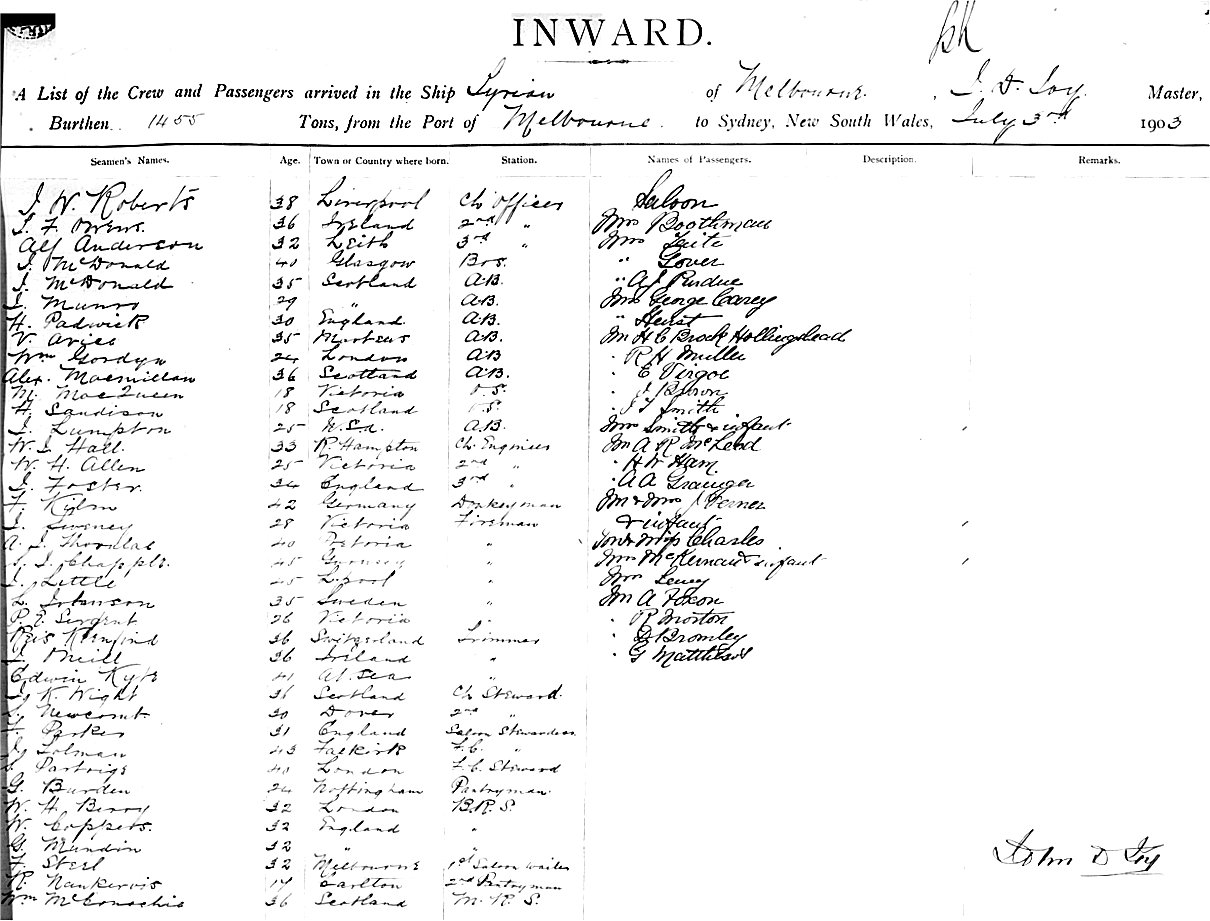 INWARD.
A List of the Crew and Passengers arrived in the Ship Syrian of Melbourne. J. D. Joy. Master,
Burthen 1455 Tons, from the Port of Melbourne. to Sydney, New South Wales, July 3rd 1903
Seamen's Names. Age. Town or Country where born. Station. Names of Passengers. Description. Remarks.
J. W. Roberts 38 Liverpool Ch Officer Saloon
36 Ireland 2nd " Mrs Boothman
Alf Anderson 32 Leith 3rd " Mrs
J. McDonald 40 Glasgow Bos. "
J. McDonald 35 Scotland A.B. " A J Purdue
J. Munro 29 " A.B. Mrs George Carey
H. Padwick 30 England A.B. " Hurst
V. 35 A.B. Mr H C Brock Hollingshead
Wm Gordyn 24 London A.B R H Muller
Alex. Macmillan 36 Scotland A.B. E Virgoe
M. MacQueen 18 Victoria O.S. J Brown
H. Sandison 18 Scotland O.S. J T Smith
J. Lumpton 25 A.B. Mrs Smith & infant
W. J. Hall. 33 R. Hampton Ch Engineer Mr A R McLeod
W. H. Allen 25 Victoria 2nd " H W Ham
J. Foster. 34 England 3rd " A A Grainger
F. 42 Germany Donkeyman Mr & Mrs J Ferner
J. Sweney 28 Victoria Fireman & infant
A. J. 40 " Charles
J. Chapple. 45 Guernsey " Mrs McKernan & infant
J. Little 45 L.pool " Mrs
L. Johnson 35 Sweden " Mr A Foxon
P. E. Sergent 26 Victoria " R Morton
36 Switzerland Trimmer Bromley
J. Oneill 36 Ireland " G Matthews
Edwin Kyte 41 At Sea "
J. K. Wight 36 Scotland Ch Steward.
Newcomb 30 Dover 2nd "
F. Parker 31 England Saloon Stewardess
J. Tolman 43 Falkirk F.C. "
Partrige 40 London F.C. Steward
G. Burden 24 Nottingham Pantryman
W. H. Berry 32 London B.R.S.
W. Coppers. 32 England "
G. Mundin 32 " "
John D Joy
F. Steel 32 Melbourne 1st Saloon Waiter
R. Nankervis 17 Carlton 2nd Pantryman
Wm McConachie 36 Scotland M.R.S.